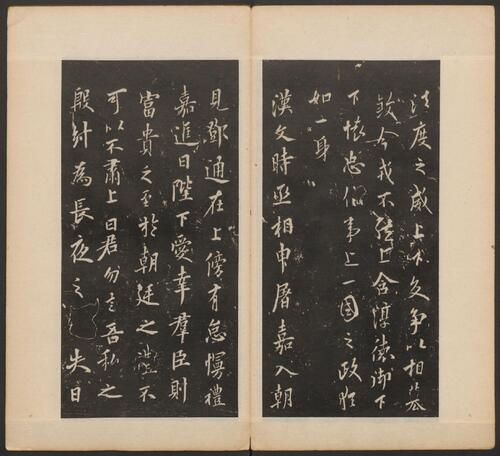 法度之威上下交爭以相篡
今戎不然上含淳德御下
下懷忠信事上一國之政猶
如一身
漢文時丞相申屠嘉入朝
見鄧通在上傍有怠慢禮
嘉進曰陛下愛幸羣臣則
富貴之至於朝廷之禮不
可以不肅上曰君勿言吾私之
殷紂為長夜之失日